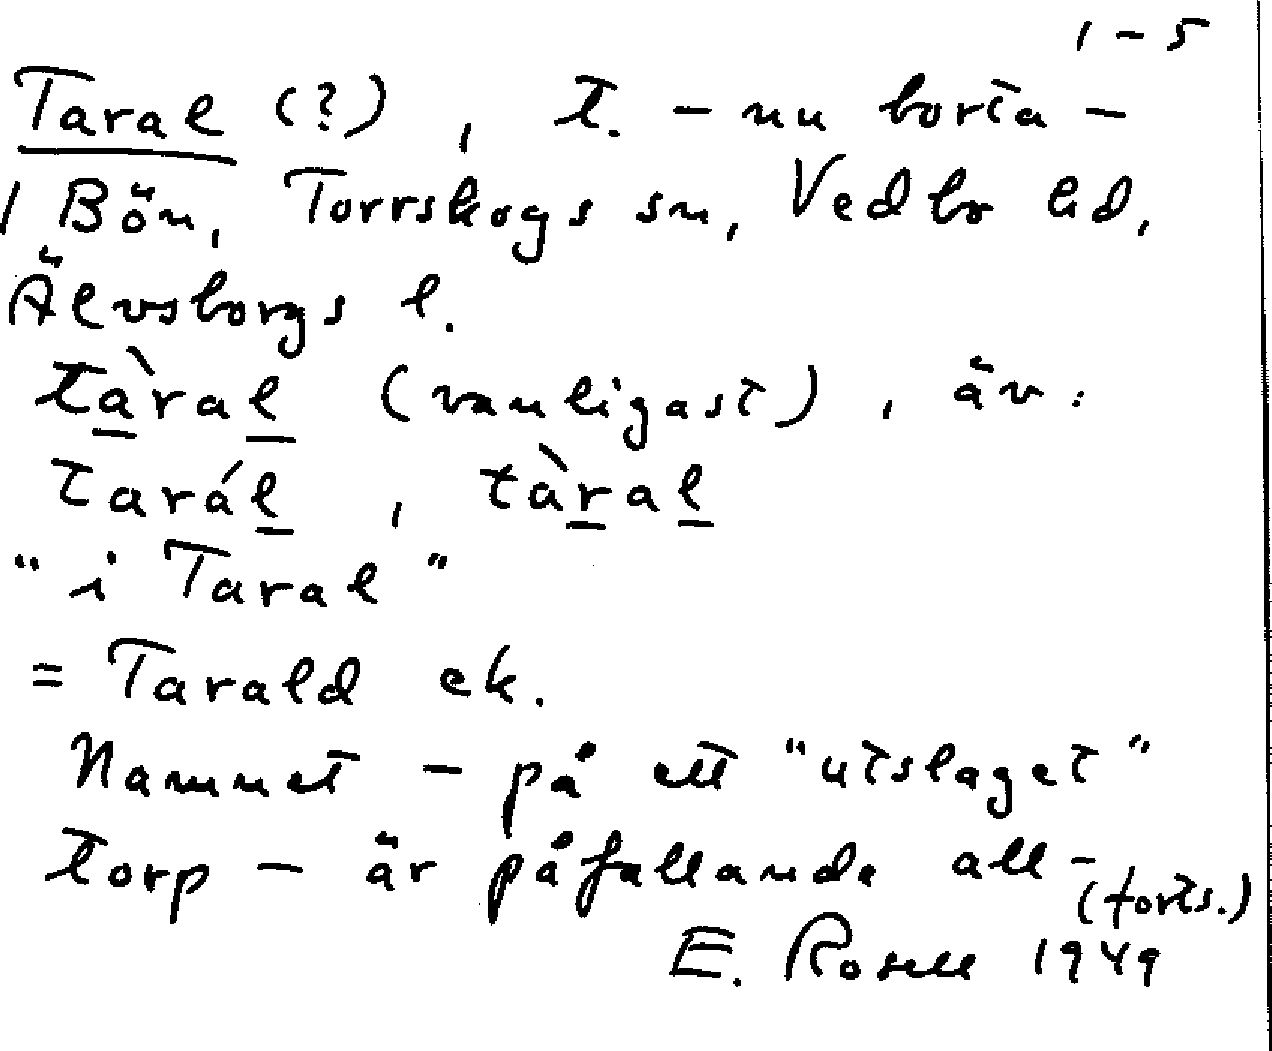 1-5
Taral (?), t. - nu borta -
i Bön, Torrskogs sn, Vedbo hd,
Älvsborgs l.
tàral (vanligast), äv.
tarál, tàral
"i Taral"
= Tarald ek.
Namnet - på ett "utslaget"
torp - är påfallande all-
(forts.)
E. Rosell 1949